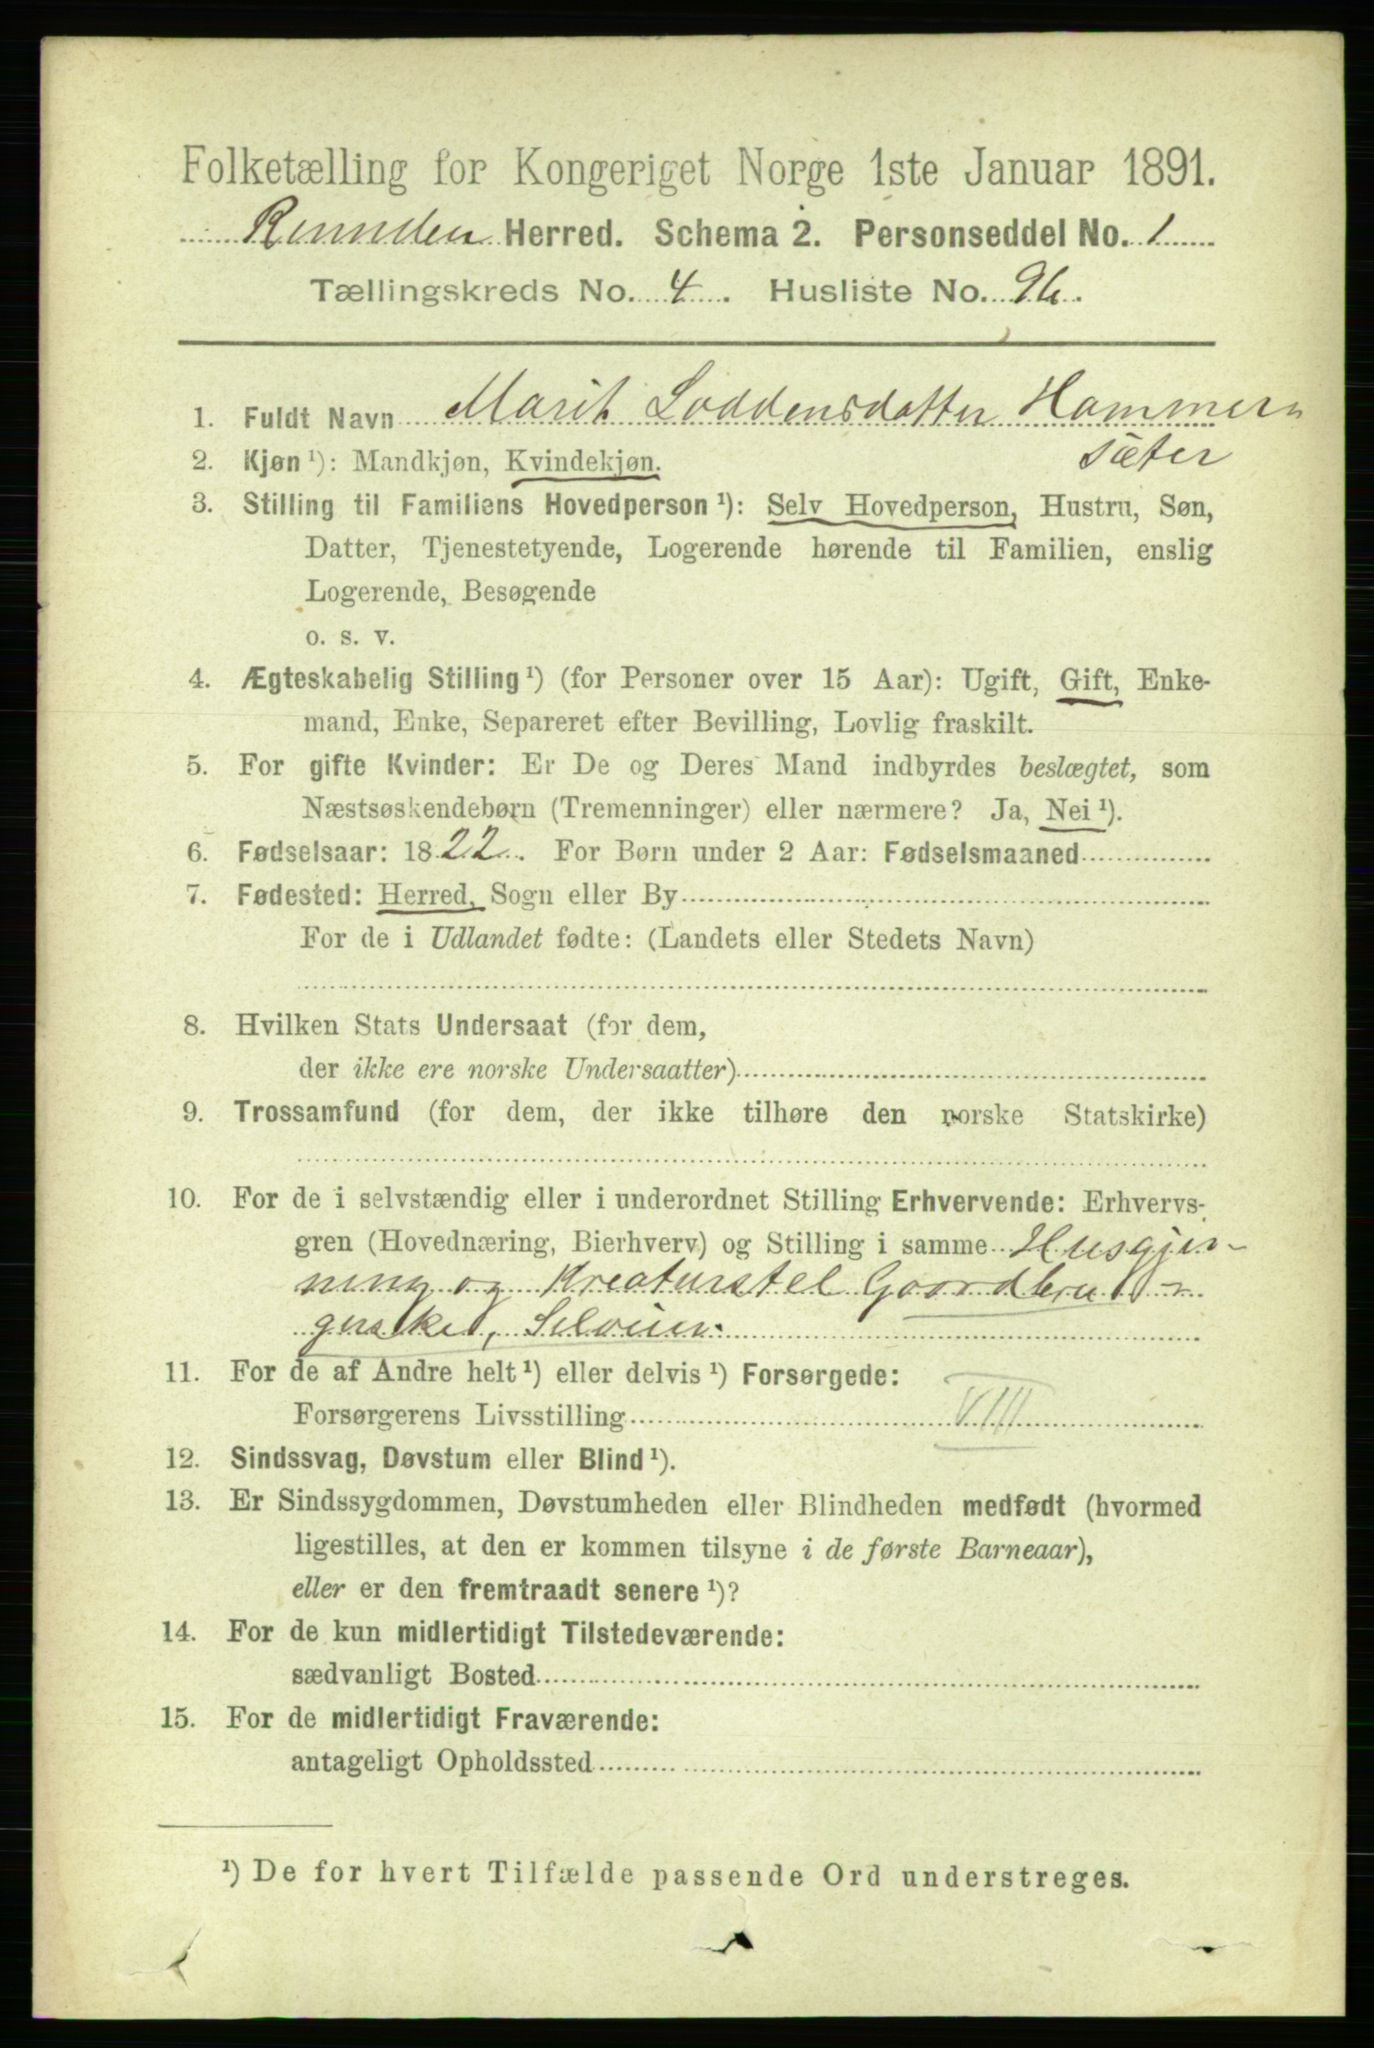 Folketælling for Kongeriget Norge 1ste Januar 1891.
Rennden Herred. Schema 2. Personseddel No. 1
Tællingskreds No. 4. Husliste No. 96.
1. Fuldt Navn Marit Loddensdatter Hammer=
sæter
2. Kjøn ¹): Mandkjøn, Kvindekjøn.
3. Stilling til Familiens Hovedperson ¹): Selv Hovedperson, Hustru, Søn,
Datter, Tjenestetyende, Logerende hørende til Familien, enslig
Logerende, Besøgende
o. s. v.
4. Ægteskabelig Stilling ¹) (for Personer over 15 Aar): Ugift, Gift, Enke-
mand, Enke, Separeret efter Bevilling, Lovlig fraskilt.
5. For gifte Kvinder: Er De og Deres Mand indbyrdes beslægtet, som
Næstsøskendebørn (Tremenninger) eller nærmere? Ja, Nei ¹).
6. Fødselsaar: 1822. For Børn under 2 Aar: Fødselsmaaned
7. Fødested: Herred, Sogn eller By
For de i Udlandet fødte: (Landets eller Stedets Navn)
8. Hvilken Stats Undersaat (for dem,
der ikke ere norske Undersaatter)
9. Trossamfund (for dem, der ikke tilhøre den norske Statskirke)
10. For de i selvstændig eller i underordnet Stilling Erhvervende: Erhvervs-
gren (Hovednæring, Bierhverv) og Stilling i samme Husgjer-
ning og Kreaturstel Gaardbru=
gerske, Seleier.
11. For de af Andre helt ¹) eller delvis ¹) Forsørgede:
Forsørgerens Livsstilling VIII
12. Sindssvag, Døvstum eller Blind ¹).
13. Er Sindssygdommen, Døvstumheden eller Blindheden medfødt (hvormed
ligestilles, at den er kommen tilsyne i de første Barneaar),
eller er den fremtraadt senere ¹)?
14. For de kun midlertidigt Tilstedeværende:
sædvanligt Bosted
15. For de midlertidigt Fraværende:
antageligt Opholdssted
¹) De for hvert Tilfælde passende Ord understreges.